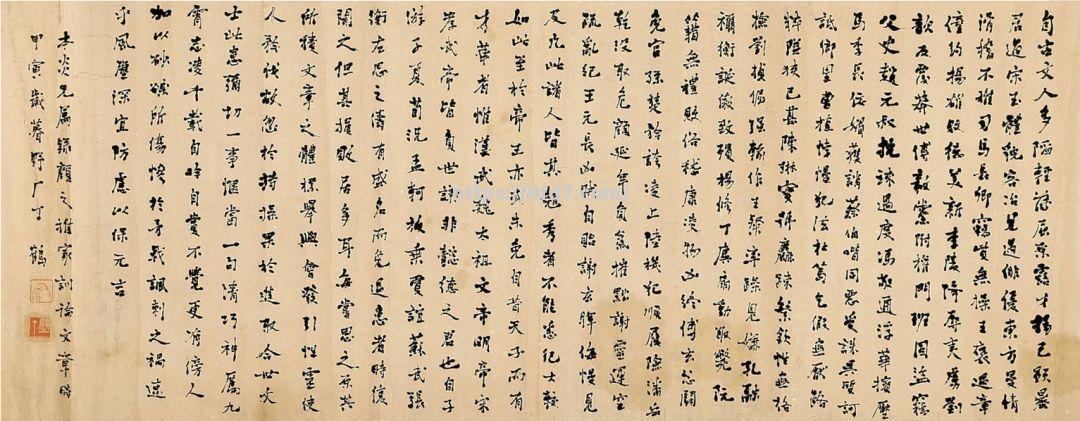 自古文人多陷輕薄屈原露才揚己顯暴
君過宋玉體貌容冶見遇俳優東方曼倩
滑稽不雅司馬長卿竊貲無操王褒過章
僮約揚雄敗德美新李陵降辱夷虜劉
歆反覆莽世傅毅黨附權門班固盜竊
父史趙元叔抗竦過度馮敬通浮華擯壓
馬季長佞媚獲誚蔡伯喈同惡受誅吳質訶
詆鄉里曹植悖慢犯法杜篤乞假無厭路
粹隘狹已甚陳琳實號麤疎繁欽性無格
檢劉楨倔強輸作王粲率躁見嫌孔融
禰衡誕傲致殞楊修丁廙扇動取斃阮
籍無禮敗俗嵇康凌物凶終傅玄忿鬭
免官孫楚矜誇凌上陸機犯順履險潘岳
乾沒取危顏延年負氣摧黜謝靈運空
疏亂紀王元長凶賊自貽謝玄暉侮慢見
及凡此諸人皆其翹秀者不能悉紀大較
如此至於帝王亦或未免自昔天子而有
才華者惟漢武魏太祖文帝明帝宋
孝武帝皆負世議非懿德之君也自子
游子夏荀況孟軻枚乘賈誼蘇武張
衡左思之儔有盛名而免過患者時復
聞之但其損敗居多耳每嘗思之原其
所積文章之體標舉興會發引性靈使
人矜伐故忽於持操果於進取今世文
士此患彌切一事愜當一句清巧神厲九
霄志凌千載自吟自賞不覺更有傍人
加以砂礫所傷慘於矛戟諷刺之禍速
乎風塵深宜防慮以保元吉
太炎兄屬錄顏之推家訓論文章時
甲寅歲暮野厂丁鶴